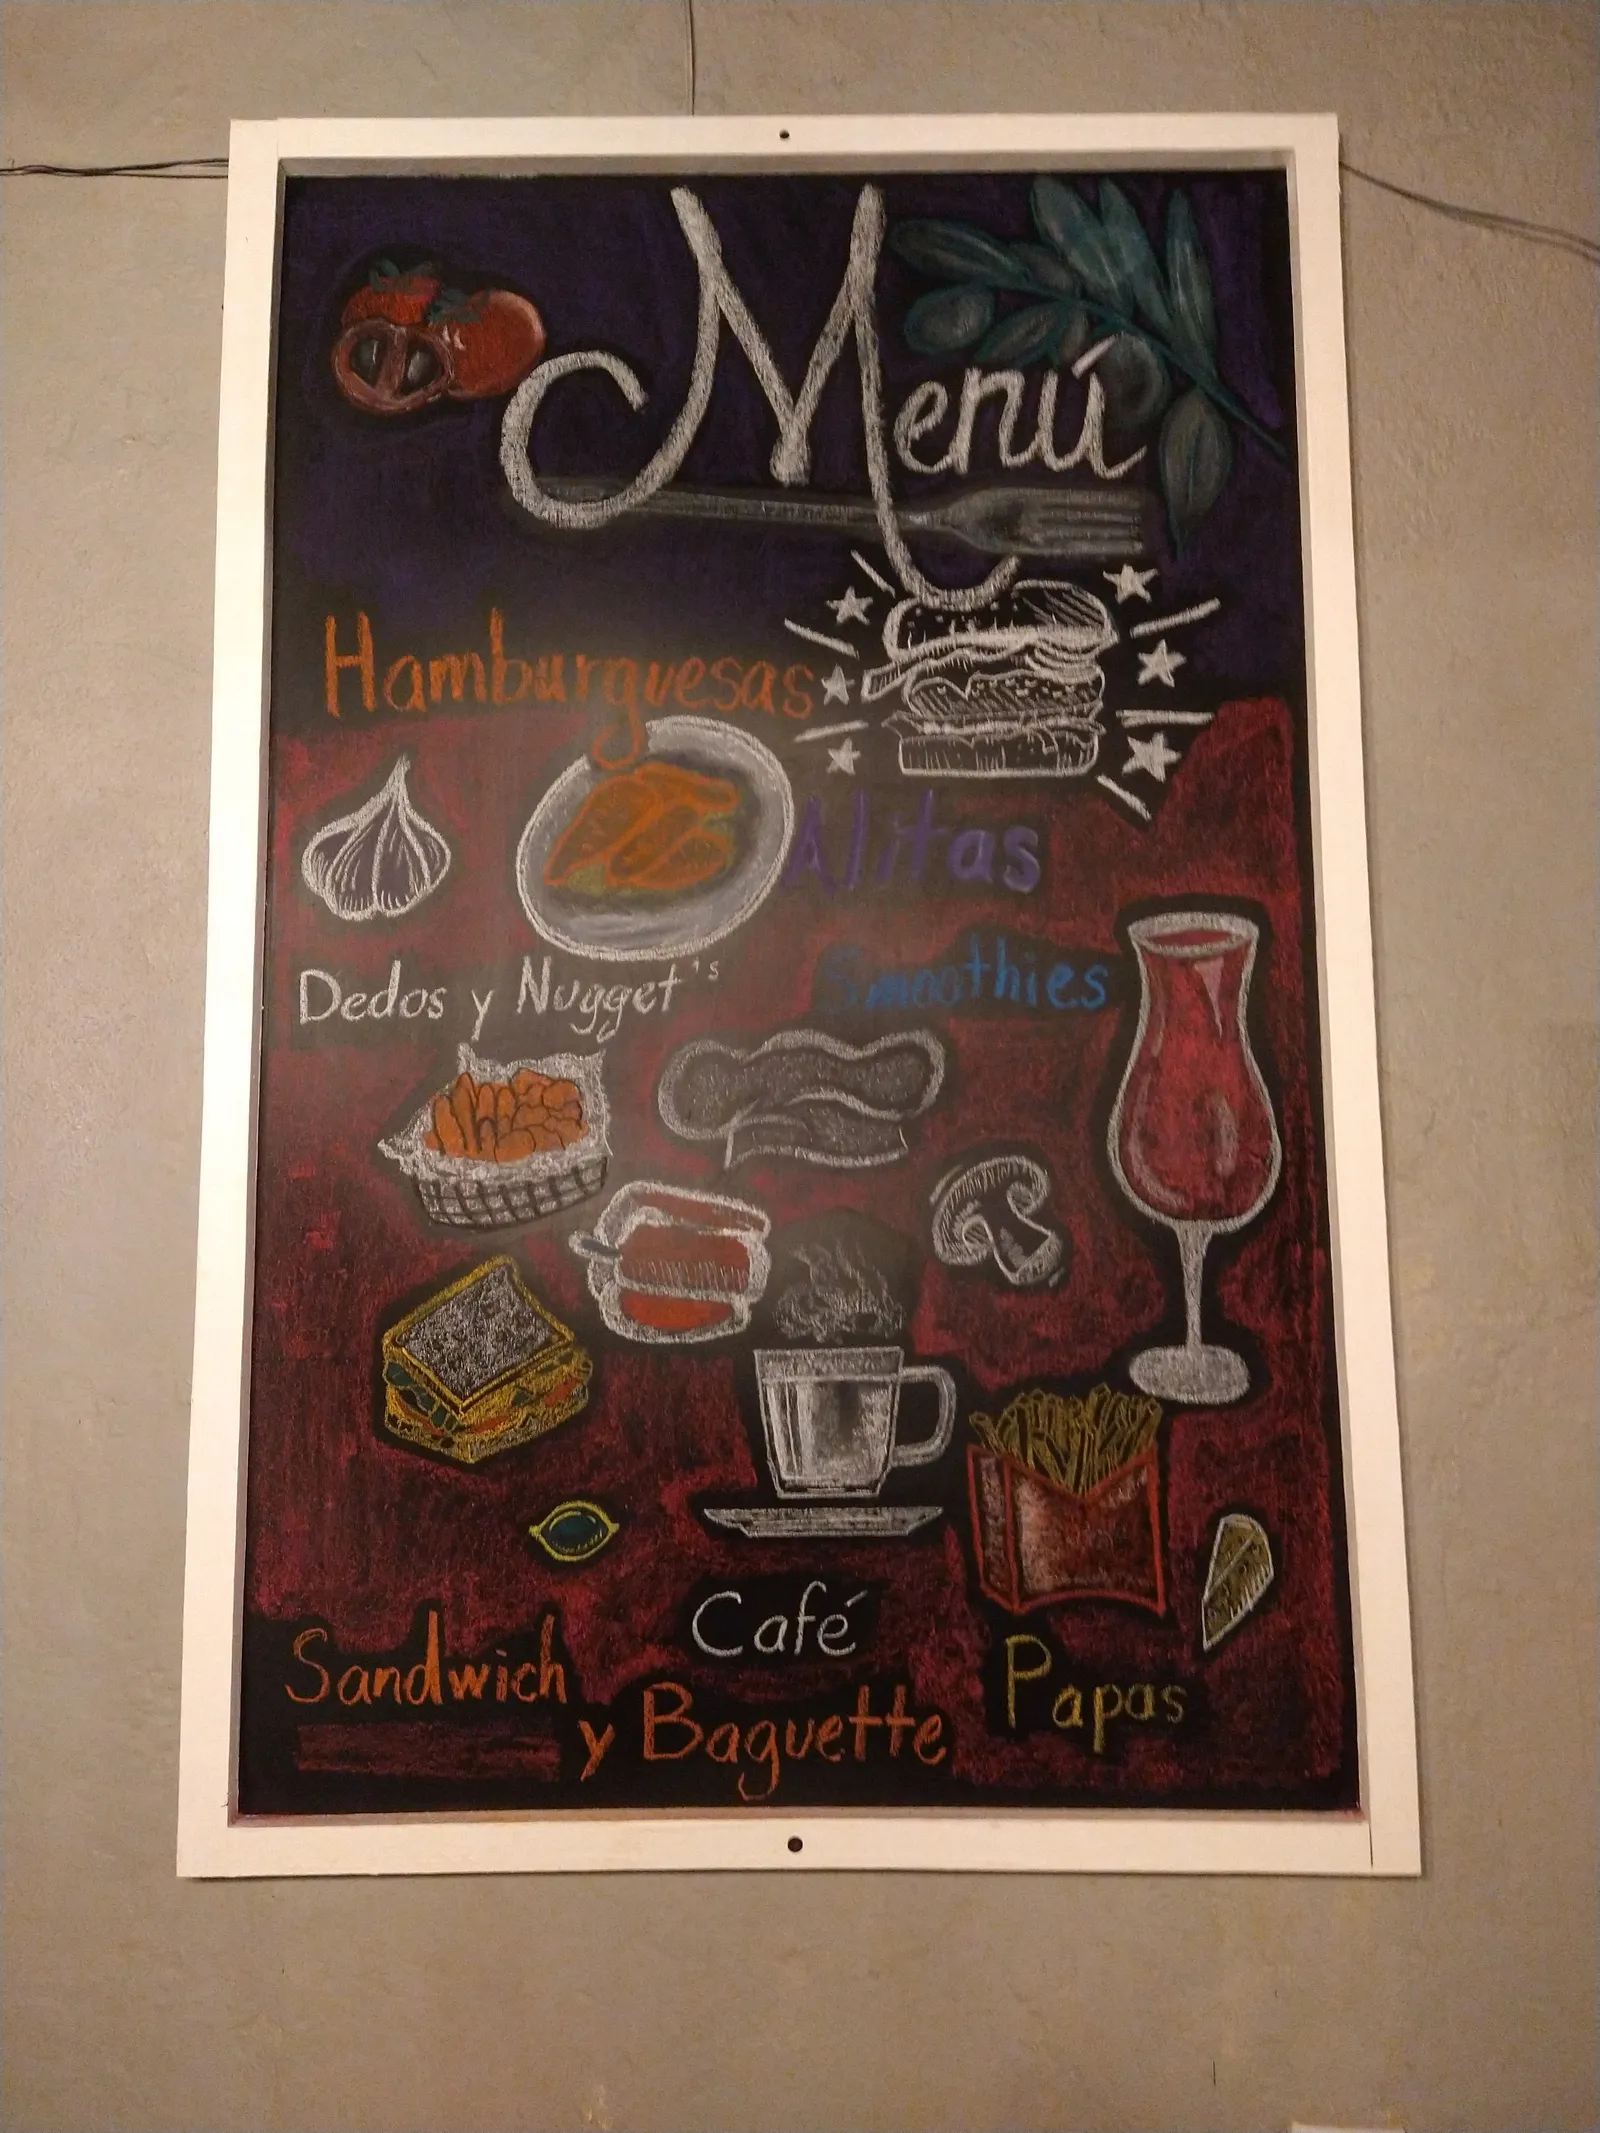 Menú
Hamburguesas
Alitas
Dedos y Nugget's
Smoothies
Café
Sandwich
y Baguette
Papas